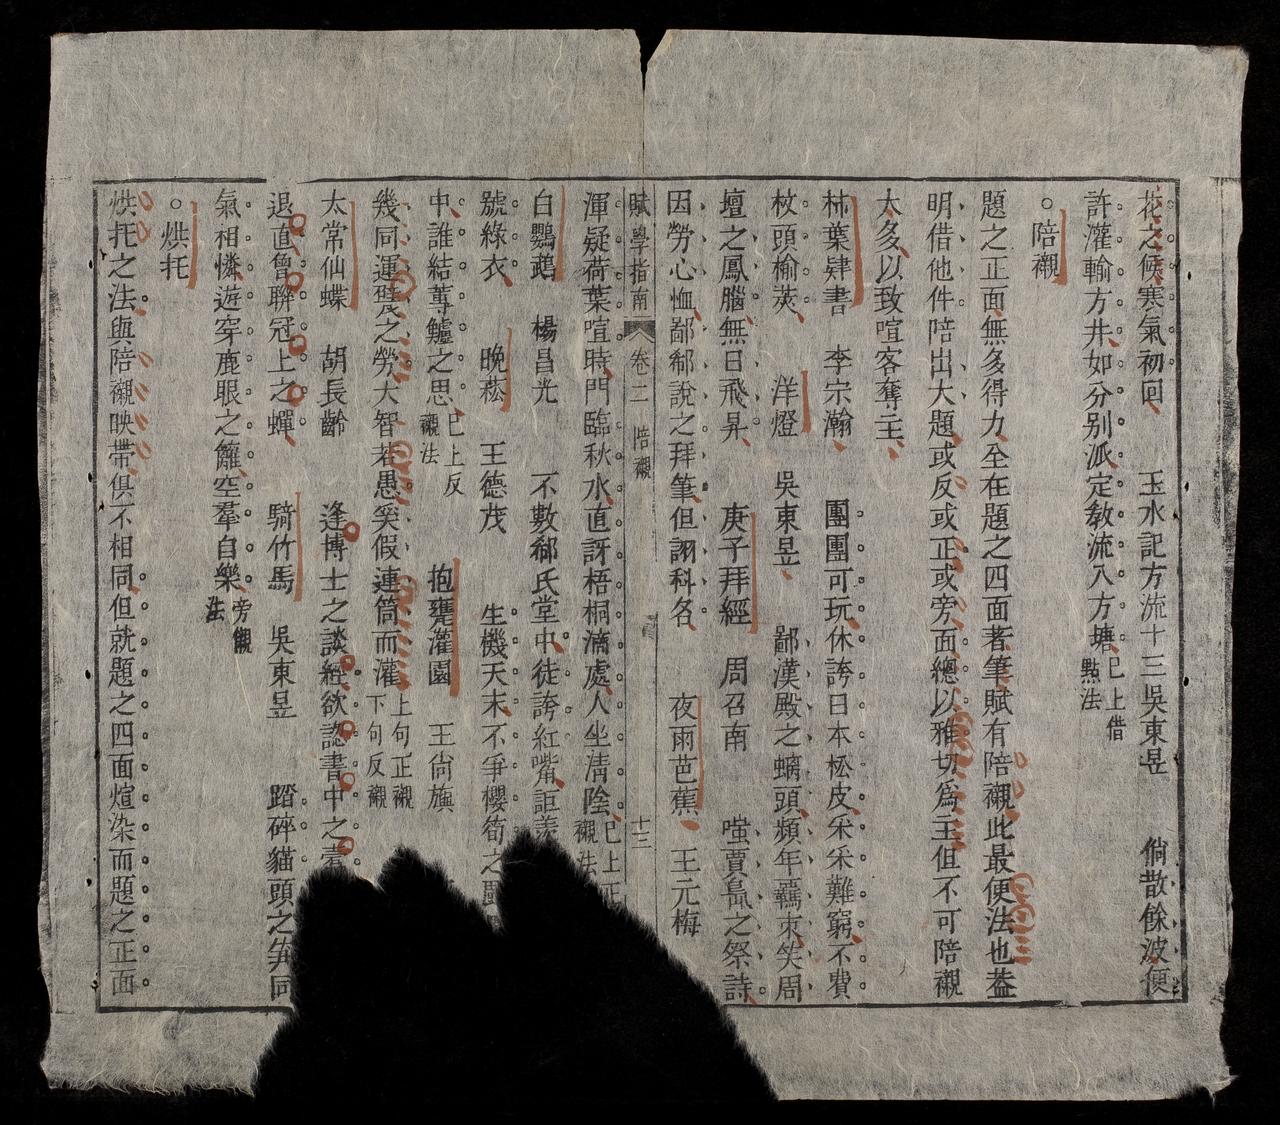 花之候寒氣初回　玉水記方流十三吳東昱　倘散餘波便
許灌輸方井如分別派定教流入方塘已上借點法
。陪襯
題之正面無多得力全在題之四面著筆賦有陪襯此最便法也蓋
明借他件陪出大題或反或正或旁面總以雅切為主但不可陪襯
太多以致喧客奪主
柹葉肄書　李宗瀚　團團可玩休誇日本松皮采采難窮不費
杖頭榆莢　洋燈　吳東昱　鄙漢殿之螭頭頻年羈束笑周
壇之鳳腦無日飛昇　庚子拜經　周召南　嗤賈島之祭詩
因勞心恤鄙郗說之拜筆但詡科名　夜雨芭蕉　王元梅
賦學指南　卷二　陪襯　十三
渾疑荷葉喧時門臨秋水直訝梧桐滴處人坐清陰已上正襯法
白鸚鵡　楊昌光　不數郗氏堂中徒誇紅嘴詎羨
號綠衣　晚菘　王德茂　生機天末不爭櫻筍之
中誰結蓴鱸之思已上反襯法　抱甕灌園　王尙旟
幾同運甓之勞大智若愚笑假連筒而灌上句正襯下句反襯
太常仙蝶　胡長齡　逢博士之談經欲認書中之
退直曾聯冠上之蟬　騎竹馬　吳東昱　踏碎貓頭之笋同
氣相憐遊穿鹿眼之籬空羣自樂旁襯法
。烘托
烘托之法與陪襯映帶俱不相同但就題之四面煊染而題之正面